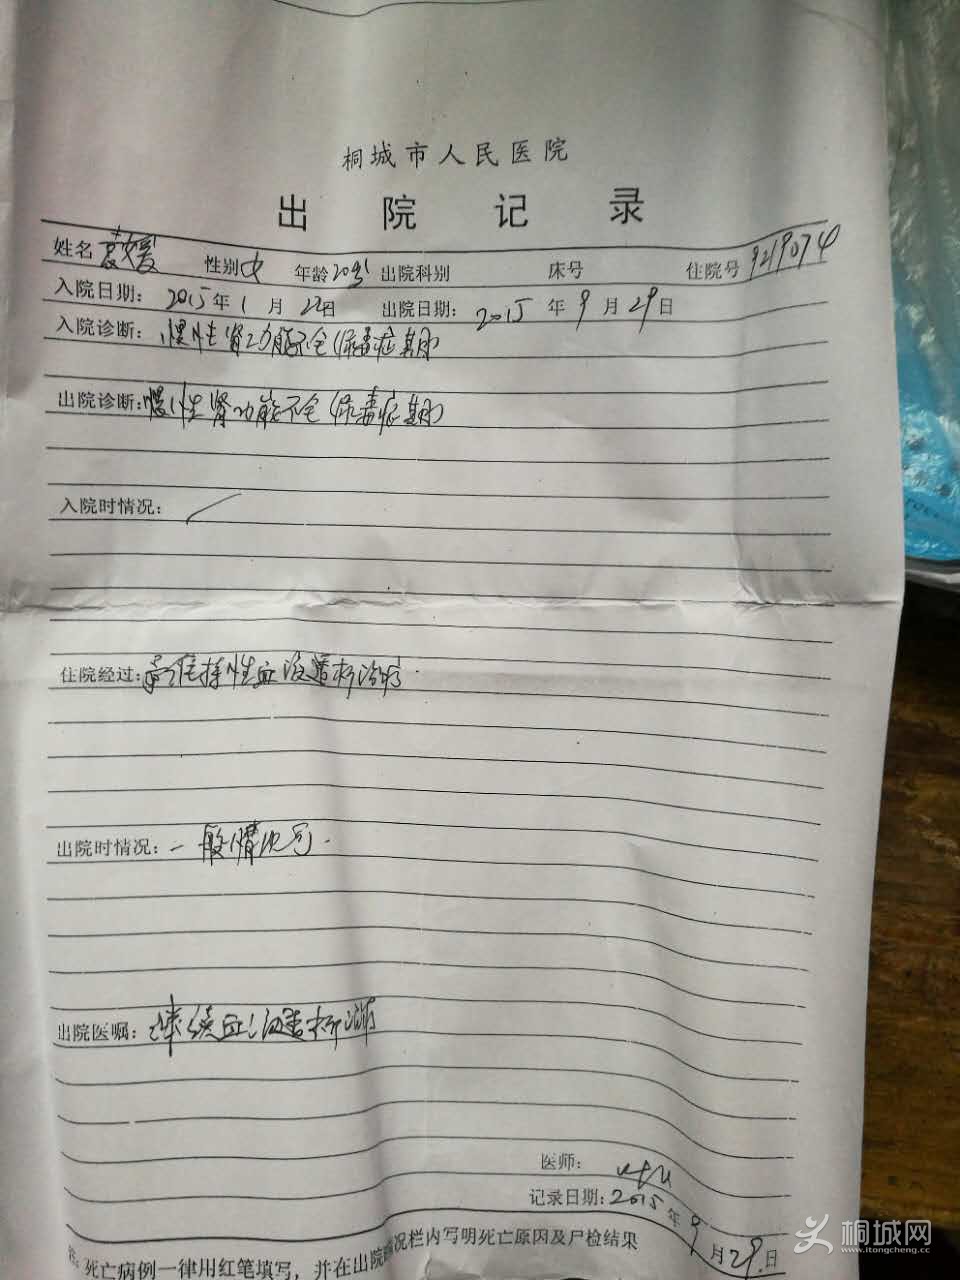 桐城市人民医院
出院记录
姓名 袁媛 性别 女 年龄 20岁 出院科别 床号 住院号 9219074
入院日期: 2015年1月22日 出院日期: 2015年9月29日
入院诊断: 慢性肾功能不全(尿毒症期)
出院诊断: 慢性肾功能不全(尿毒症期)
入院时情况: /
住院经过: 维持性血液透析治疗.
出院时情况: 一般情况可.
出院医嘱: 继续血液透析治疗
医师:
记录日期: 2015年9月29日
注: 死亡病例一律用红笔填写, 并在出院情况栏内写明死亡原因及尸检结果
桐城网
www.itongcheng.cc